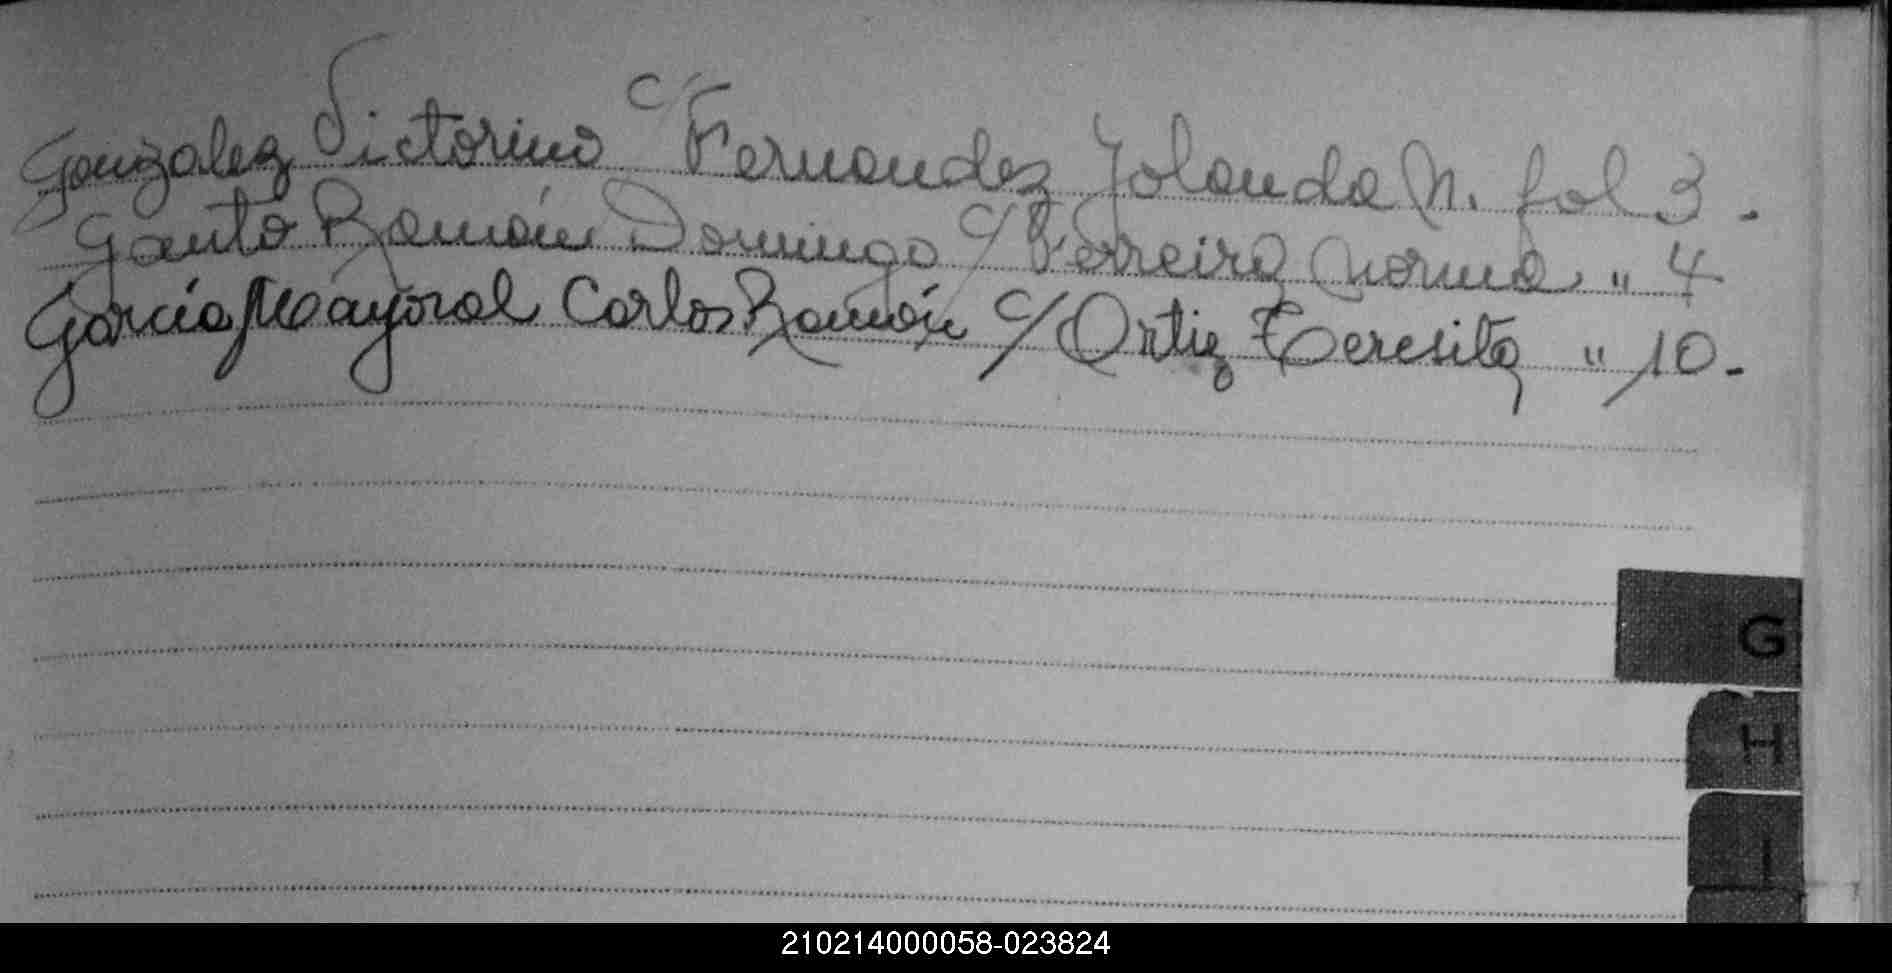 Gonzalez Victorino c/ Fernandez Yolanda N. fol 3.
Gauto Ramón Domingo c/ Ferreira Norma " 4
García Mayoral Carlos Ramón c/ Ortiz Teresita " 10.
G
H
I
210214000058-023824